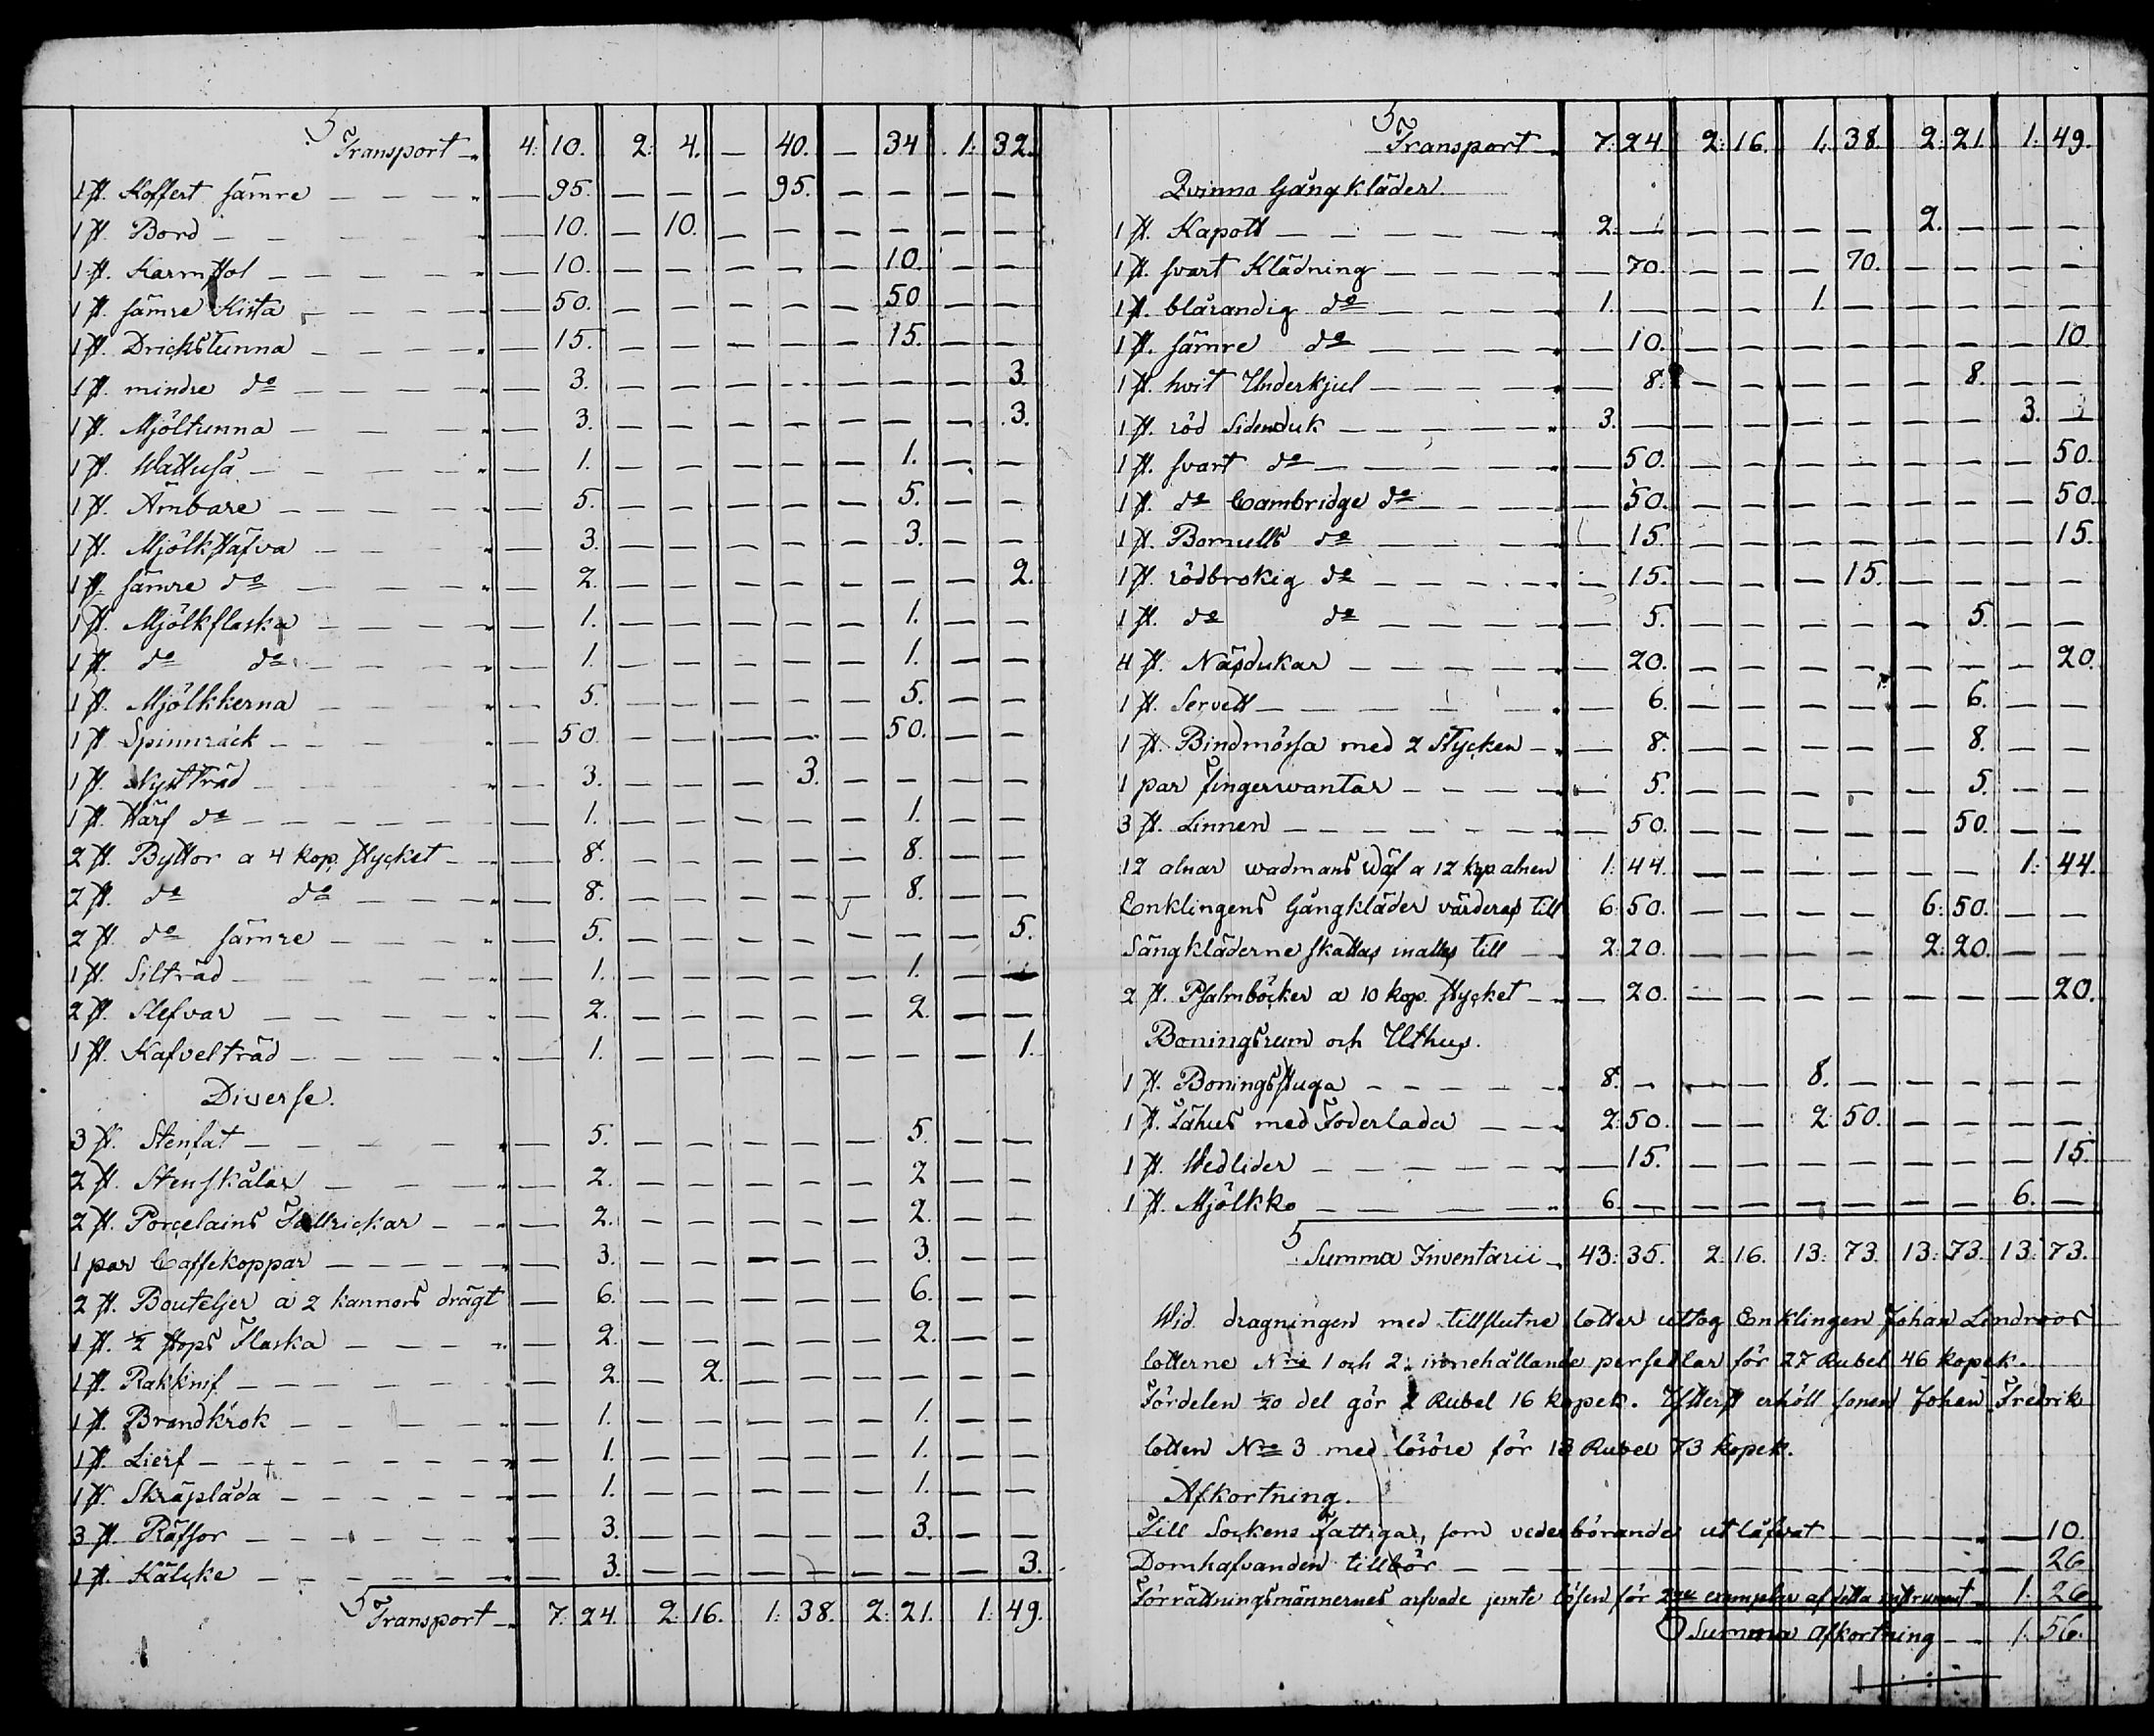 Transport 4: 10. 2: 4. — 40. — 34 1: 32.
1 st. Koffert sämre — 95. — — — 95. — — — —
1 st. Bord — 10. — 10. — — — — — —
1 st. Karmstol — 10. — — — — — 10. — —
1 st. sämre Kista — 50. — — — — — 50 — —
1 st. Drickstunna — 15. — — — — — 15. — —
1 st. mindre do — 3. — — — — — — — 3.
1 st. Mjöltunna — 3. — — — — — — — 3.
1 st. Wattuså — 1. — — — — — 1. — —
1 st. Ämbare — 5. — — — — — 5. — —
1 st. Mjölkstäfva — 3. — — — — — 3. — —
1 st. sämre do — 2. — — — — — — — 2.
1 st. Mjölkflaska — 1. — — — — — 1. — —
1 st. do do — 1. — — — — — 1. — —
1 st. Mjölkkerna — 5. — — — — — 5. — —
1 st. Spinnråck — 50. — — — — — 50. — —
1 st. Nystträd — 3. — — — 3. — — — —
1 st. Härf do — 1. — — — — — 1. — —
2 st. Byttor a 4 kop. stycket — 8. — — — — — 8. — —
2 st. do do — 8. — — — — — 8. — —
2 st. do sämre — 5. — — — — — — — 5.
1 st. Silträd — 1. — — — — — 1. — —
2 st. Slefvar — 2. — — — — — 2. — —
1 st. Kafvelträd — 1. — — — — — — — 1.
Diverse.
3 st. Stenfat — 5. — — — — — 5. — —
2 st. Stenskålar — 2. — — — — — 2 — —
2 st. Porcelains Tallrickar — 2. — — — — — 2. — —
1 par Caffekoppar — 3. — — — — — 3. — —
2 st. Bouteljer a 2 kannors drägt — 6. — — — — — 6. — —
1 st. ½ stops Flaska — 2. — — — — — 2. — —
1 st. Rakknif — 2. — 2. — — — — — —
1 st. Brandkrok — 1. — — — — — 1. — —
1 st. Lierf — 1. — — — — — 1. — —
1 st. Skräplåda — 1. — — — — — 1. — —
3 st. Räfsor — 3. — — — — — 3. — —
1 st. Kälcke — 3. — — — — — — — 3.
Transport 7: 24. 2: 16. 1: 38. 2: 21. 1: 49.
Transport 7: 24. 2: 16. 1: 38. 2: 21. 1: 49.
Qvinno Gångkläder.
1 st. Kapott 2. — — — — — 2. — — —
1 st. svart Klädning — 70. — — — 70. — — — —
1 st. blårandig do 1. — — — 1. — — — — —
1 st. sämre do — 10. — — — — — — — 10.
1 st. hvit Underkjul — 8. — — — — — 8. — —
1 st. röd Sidenduk 3. — — — — — — — 3. —
1 st. svart do — 50. — — — — — — — 50.
1 st. do Cambridge do — 50. — — — — — — — 50.
1 st. Bomulls do — 15. — — — — — — — 15.
1 st. rödbrokig do — 15. — — — 15. — — — —
1 st. do do — 5. — — — — — 5. — —
4 st. Näsdukar — 20. — — — — — — — 20.
1 st. Servett — 6. — — — — — 6. — —
1 st. Bindmössa med 2 Stycken — 8. — — — — — 8. — —
1 par fingerwantar — 5. — — — — — 5. — —
3 st. Linnen — 50. — — — — — 50. — —
12 alnar wadmans Wäf a 12 kop. alnen 1: 44. — — — — — — 1: 44.
Enklingens Gångkläder värderas till 6: 50. — — — — 6: 50. — —
Sängkläderne skattas inalles till 2: 20. — — — — 2: 20. — —
2 st. Psalmböcker a 10 kop. stycket — 20. — — — — — — — 20.
Boningsrum och Uthus.
1 st. Boningsstuga 8. — — — 8. — — — — —
1 st. Fähus med Foderlada 2: 50. — — 2: 50. — — — —
1 st. Wedlider — 15. — — — — — — — 15.
1 st. Mjölkko 6. — — — — — — — 6. —
Summa Inventarii 43: 35. 2: 16. 13: 73. 13: 73. 13: 73.
Wid dragningen med tillslutne lotter uttog Enklingen Johan Lindroos
lotterne Nro 1 och 2. innehållande persedlar för 27 Rubel 46 kopek.
Fördelen 1/20 del gör 2 Rubel 16 kopek. Ytterst erhöll sonen Johan Fredrik
lotten Nro 3 med lösöre för 13 Rubel 73 kopek.
Afkortning.
Till Sockens fattigar, som vederbörande utläfvat — 10.
Domhafvanden tillbör — 26
Förrättningsmännernes arfvode jemte lösen för 2ne exemplar af detta instrument 1. 26
Summa Afkortning 1. 56.